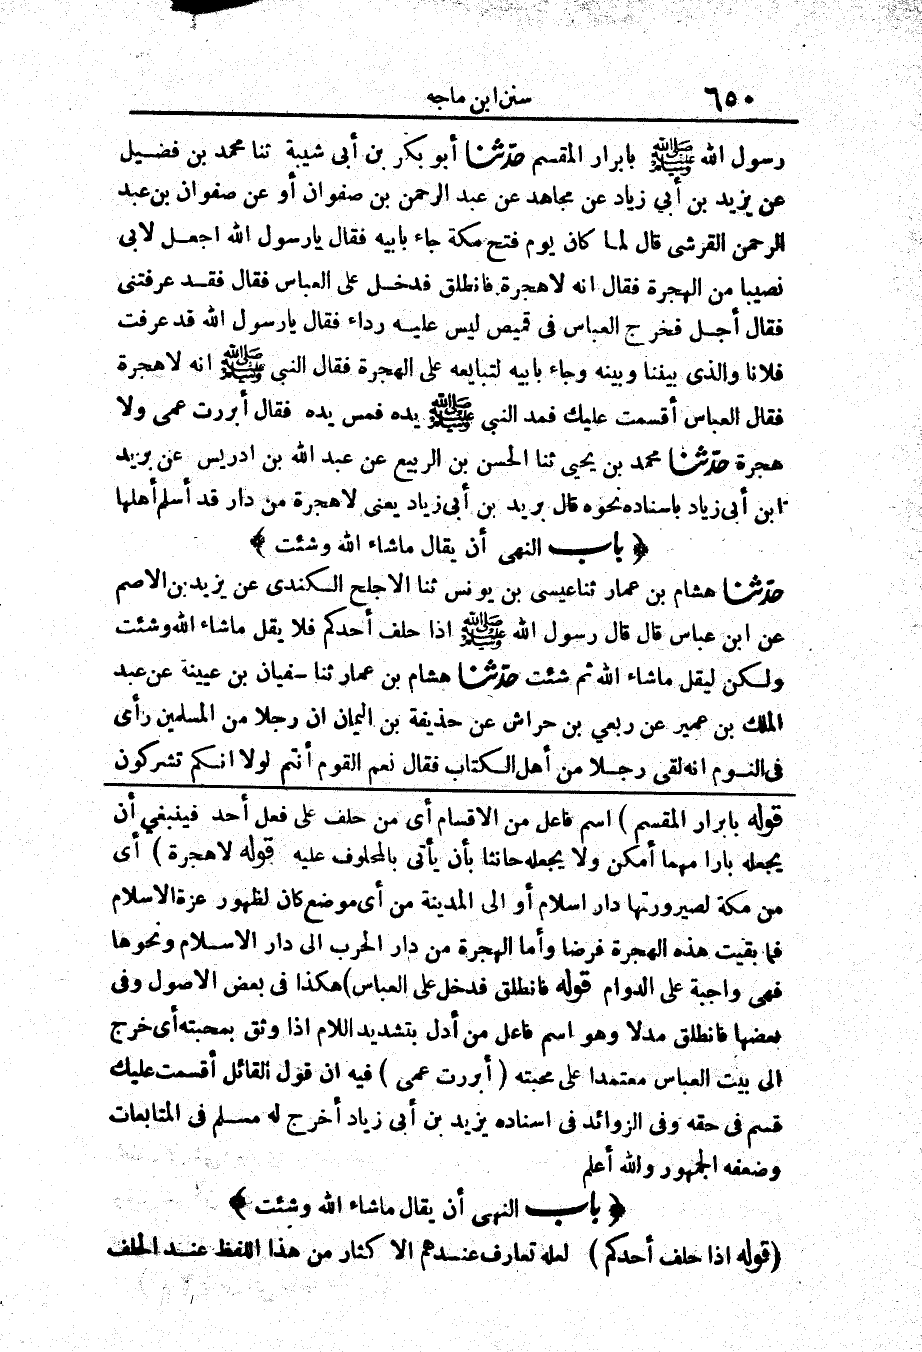 ٦٥٠ سنن ابن ماجه
رسول الله ﷺ بابرار المقسم حدّثنا أبو بكر بن أبى شيبة ثنا محمد بن فضيل
عن يزيد بن أبي زياد عن مجاهد عن عبد الرحمن بن صفوان أو عن صفوان بن عبد
الرحمن القرشى قال لما كان يوم فتح مكة جاء بابيه فقال يارسول الله اجعل لابى
نصيبا من الهجرة فقال انه لاهجرة. فانطلق فدخل على العباس فقال فقد عرفتنى
فقال أجل فخرج العباس فى قميص ليس عليه رداء فقال يارسول الله قد عرفت
فلانا والذى بيننا وبينه وجاء بابيه لتبايعه على الهجرة فقال النبى ﷺ انه لاهجرة
فقال العباس أقسمت عليك فمد النبي ﷺ يده فمس يده فقال أبررت عمى ولا
هجرة حدّثنا محمد بن يحيى ثنا الحسن بن الربيع عن عبد الله بن ادريس عن يزيد
ابن أبى زياد باسناده نحوه قال يزيد بن أبى زياد يعنى لاهجرة من دار قد أسلم أهلها
﴿ باب النهى أن يقال ماشاء الله وشئت ﴾
حدّثنا هشام بن عمار ثنا عيسى بن يونس ثنا الاجلح الكندى عن يزيد بن الاصم
عن ابن عباس قال قال رسول الله ﷺ اذا حلف أحدكم فلا يقل ماشاء الله وشئت
ولكن ليقل ماشاء الله ثم شئت حدّثنا هشام بن عمار ثنا سفيان بن عيينة عن عبد
الملك بن عمير عن ربعي بن حراش عن حذيفة بن اليمان ان رجلا من المسلمين رأى
فى النوم انه لقى رجلا من أهل الكتاب فقال نعم القوم أنتم لولا انكم تشركون
قوله بابرار المقسم ) اسم فاعل من الاقسام أى من حلف على فعل أحد فينبغي أن
يجعله بارا مهما أمكن ولا يجعله حانثا بأن يأتى بالمحلوف عليه قوله لاهجرة ) أى
من مكة لصيرورتها دار اسلام أو الى المدينة من أى موضع كان لظهور عزة الاسلام
فما بقيت هذه الهجرة فرضا وأما الهجرة من دار الحرب الى دار الاسلام ونحوها
فهى واجبة على الدوام قوله فانطلق فدخل على العباس) هكذا فى بعض الاصول وفى
بعضها فانطلق مدلا وهو اسم فاعل من أدل بتشديد اللام اذا وثق بمحبته أى خرج
الى بيت العباس معتمدا على محبته ( أبررت عمى ) فيه ان قول القائل أقسمت عليك
قسم فى حقه وفى الزوائد فى اسناده يزيد بن أبى زياد أخرج له مسلم فى المتابعات
وضعفه الجمهور والله أعلم
﴿ باب النهى أن يقال ماشاء الله وشئت ﴾
(قوله اذا حلف أحدكم ) لعله تعارف عندهم الا كثار من هذا اللفظ عند الحلف